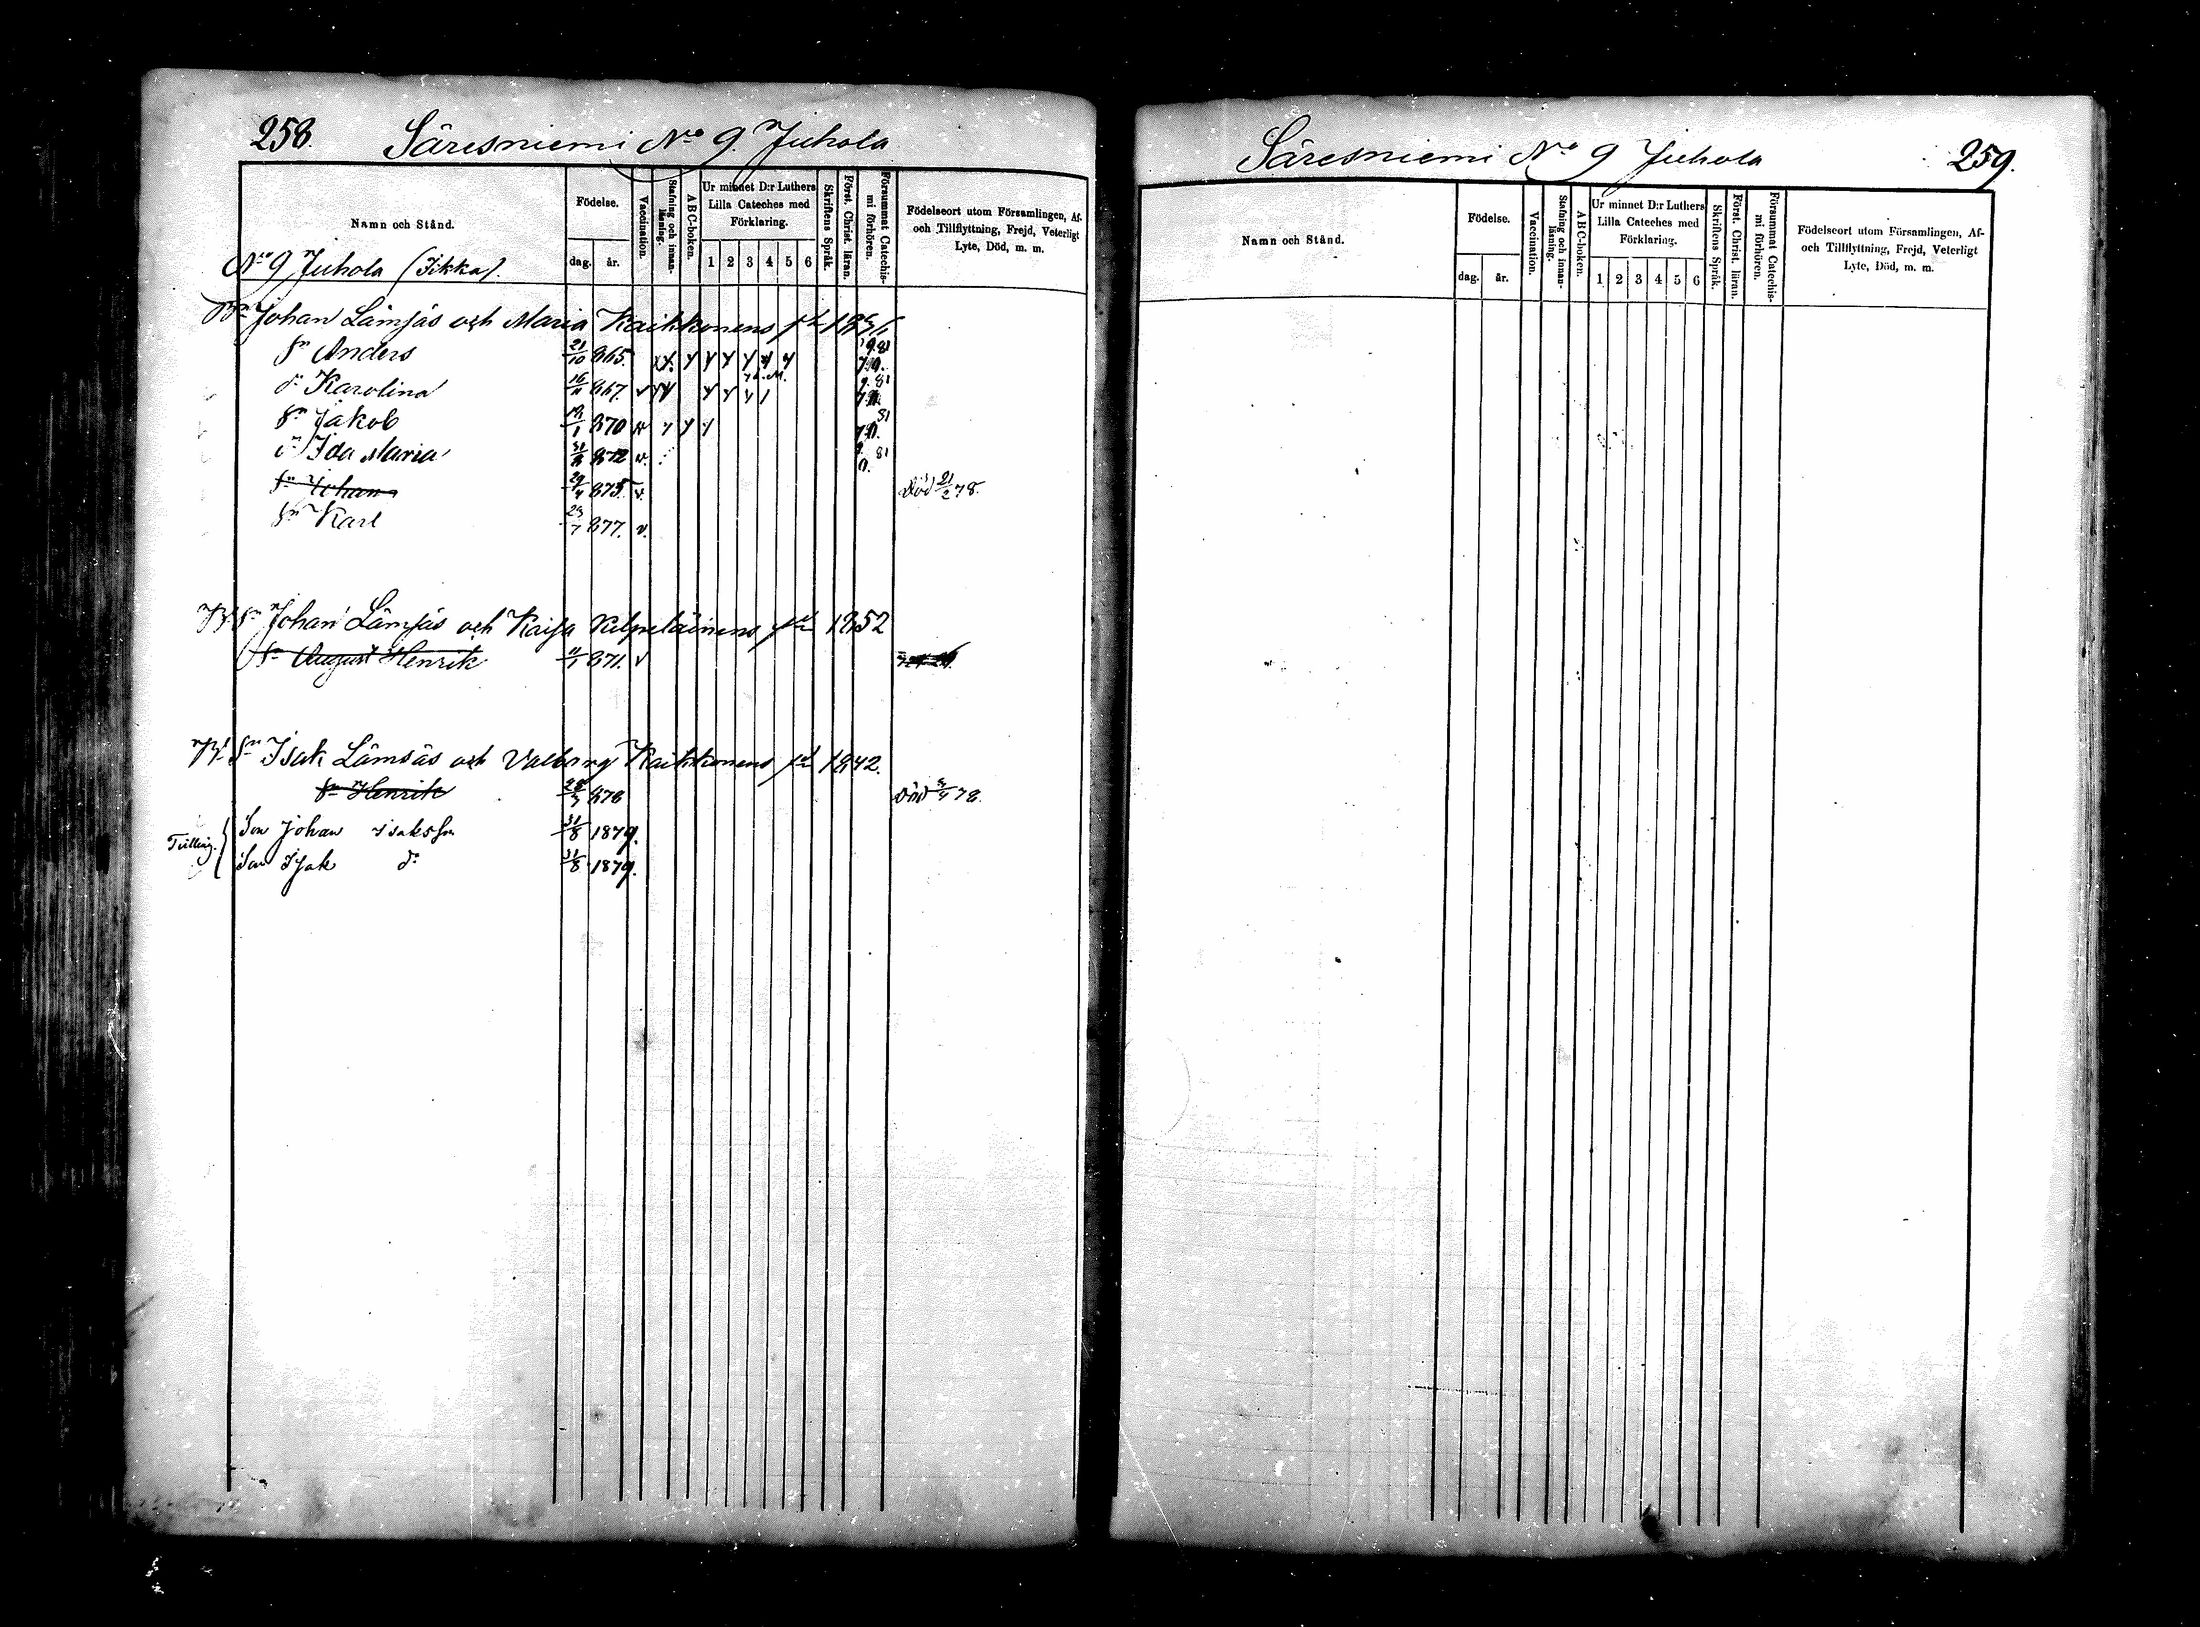 258. Säresniemi No 9. Juhola
Namn och Stånd.
Födelse.
dag. år.
Vaccination.
Stafning och innan-läsning.
ABC-boken.
Ur minnet D:r Luthers Lilla Cateches med Förklaring.
1 2 3 4 5 6
Skriftens Språk.
Först. Christ. läran.
Försummat Catechis-mi förhören.
Födelseort utom Församlingen, Af- och Tillflyttning, Frejd, Veterligt Lyte, Död, m. m.
No 9 Juhola (Iikka).
Johan Lämsäs och Maria Kaikkonens
sn Anders 21/10 865.
dr Karolina 867.
sn Jakob 870
dr Ida Maria 872 v.
sn Johan 29/4 875. v. Död 21/2 78.
sn Karl 877. v.
sn Johan Lämsäs och Kaisa Kilpeläinens 1852
sn August Henrik 871. v
sn Isak Lämsäs och Valborg Kaikkonens 1842.
sn Henrik 878 död 78.
Tvilling. Son Johan Isaksson 31/8 1879.
Son Isak do 31/8 1879.
Säresniemi No 9 Juhola 259.
Namn och Stånd.
Födelse.
dag. år.
Vaccination.
Stafning och innan-läsning.
ABC-boken.
Ur minnet D:r Luthers Lilla Cateches med Förklaring.
1 2 3 4 5 6
Skriftens Språk.
Först. Christ. läran.
Försummat Catechis-mi förhören.
Födelseort utom Församlingen, Af- och Tillflyttning, Frejd, Veterligt Lyte, Död, m. m.